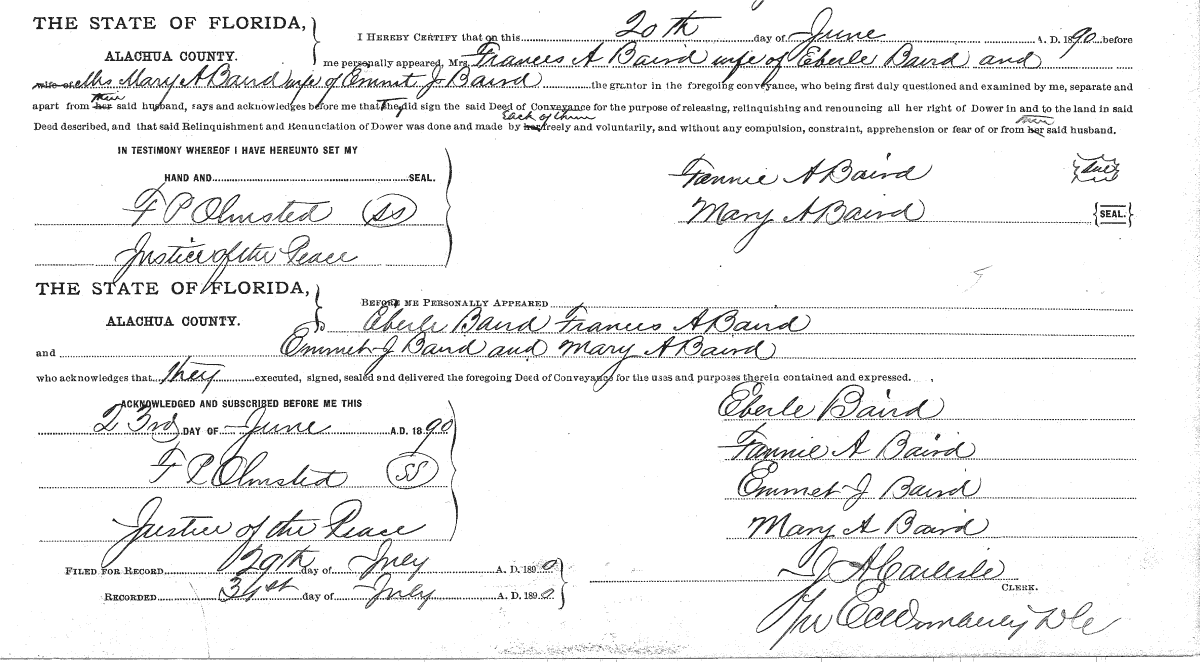 THE STATE OF FLORIDA,
ALACHUA COUNTY.
I HEREBY CERTIFY that on this 20th day of June A. D. 1890 before
me personally appeared, Mrs. Frances A Baird wife of Eberle Baird and
wife of Mrs Mary A Baird wife of Emmet J Baird the grantor in the foregoing conveyance, who being first duly questioned and examined by me, separate and
apart from her their said husband, says and acknowledges before me that They did sign the said Deed of Conveyance for the purpose of releasing, relinquishing and renouncing all her right of Dower in and to the land in said
Deed described, and that said Relinquishment and Renunciation of Dower was done and made by her Each of them freely and voluntarily, and without any compulsion, constraint, apprehension or fear of or from her their said husband.
IN TESTIMONY WHEREOF I HAVE HEREUNTO SET MY
HAND AND SEAL.
F P Olmsted SS
Justice of the Peace
Fannie A Baird Seal
Mary A Baird SEAL.
THE STATE OF FLORIDA,
ALACHUA COUNTY.
BEFORE ME PERSONALLY APPEARED
Eberle Baird Frances A Baird
and Emmet J Baird and Mary A Baird
who acknowledges that they executed, signed, sealed and delivered the foregoing Deed of Conveyance for the uses and purposes therein contained and expressed.
ACKNOWLEDGED AND SUBSCRIBED BEFORE ME THIS
23rd DAY OF June A.D. 1890
F P Olmsted SS
Justice of the Peace
Eberle Baird
Fannie A Baird
Emmet J Baird
Mary A Baird
FILED FOR RECORD 29th day of July A. D. 1890
RECORDED 31st day of July A. D. 1890
J A Carlisle
CLERK.
Per E C Wimberly D C